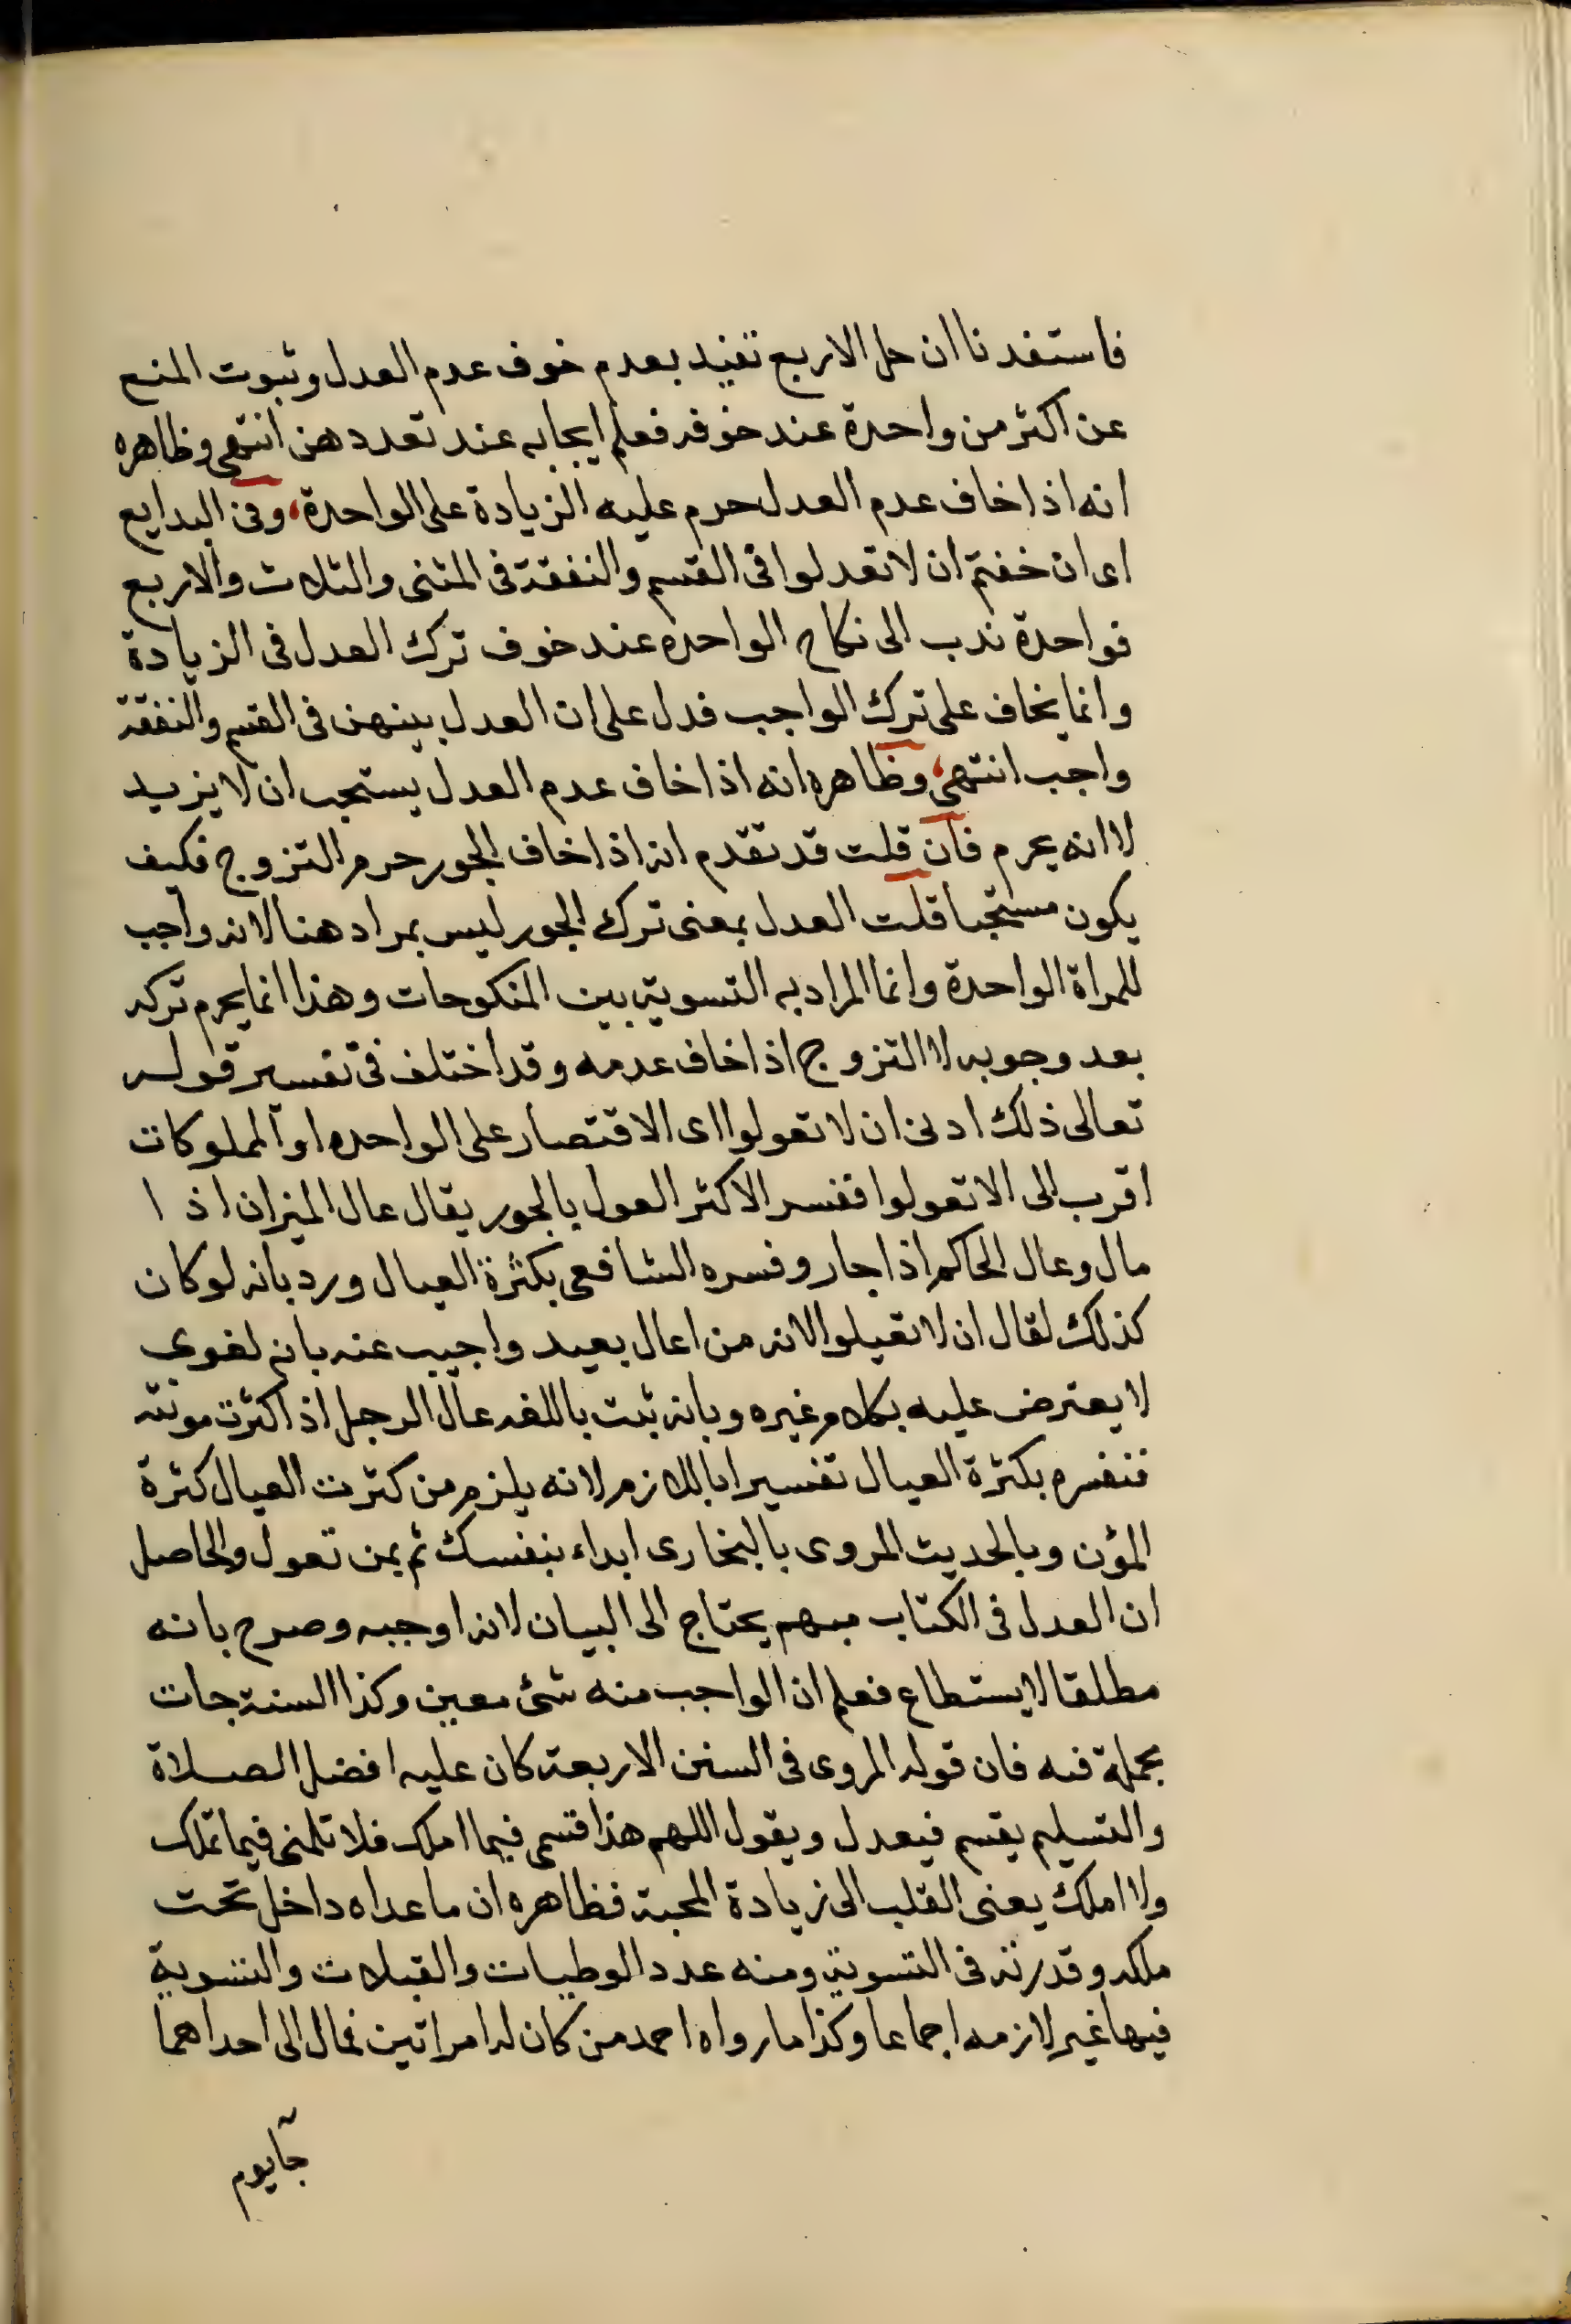 فاستفدنا ان حل الاربع تقيد بعدم خوف عدم العدل وثبوت المنع
عن اكثر من واحدة عند خوفه فعلم ايجابه عند تعددهن انتهى وظاهره
انه اذا خاف عدم العدل حرم عليه الزيادة على الواحدة، وفى البدايع
اى ان خفتم ان لا تعدلوا فى القسم والنفقة فى المثنى والثلاث والاربع
فواحدة ندب الى نكاح الواحده عند خوف ترك العدل فى الزيادة
وانما يخاف على ترك الواجب فدل على ان العدل بينهن فى القسم والنفقة
واجب انتهى، وظاهره انه اذا خاف عدم العدل يستحب ان لا يزيد
لا انه يحرم فان قلت قد تقدم انه اذا خاف الجور حرم التزوج فكيف
يكون مستحبا قلت العدل بمعنى ترك الجور ليس بمراد هنا لانه واجب
للمراة الواحدة وانما المراد به التسوية بين المنكوحات وهذا انما يحرم تركه
بعد وجوبه لا التزوج اذا خاف عدمه وقد اختلف فى تفسير قوله
تعالى ذلك ادنى ان لا تعولوا اى الاقتصار على الواحده او المملوكات
اقرب الى الا تعولوا ففسر الاكثر العول بالجور يقال عال الميزان اذا
مال وعال الحاكم اذا جار وفسره الشافعى بكثرة العيال ورد بانه لو كان
كذلك لقال ان لا تعيلوا لانه من اعال بعيد واجيب عنه بانه لغوى
لا يعترض عليه بكلام غيره وبانه ثبت باللغه عال الرجل اذ اكثرت مونته
فتفسره بكثرة العيال تفسيرا باللازم لانه يلزم من كثرت العيال كثرة
المؤن وبالحديث المروى بالبخارى ابداء بنفسك ثم بمن تعول والحاصل
ان العدل فى الكتاب مبهم يحتاج الى البيان لانه اوجبه وصرح بانه
مطلقا لا يستطاع فعلم ان الواجب منه شئ معين وكذا السنة جات
بجملة فيه فان قوله المروى فى السنن الاربعة كان عليه افضل الصلاة
والتسليم يقسم فيعدل ويقول اللهم هذا قسمى فيما املك فلا تلمنى فيما تملك
ولا املك يعنى القلب الى زيادة المحبة فظاهره ان ما عداه داخل تحت
ملكه وقدرته فى التسوية ومنه عدد الوطيات والقبلات والتسوية
فيها غير لازمه اجماعا وكذا ما رواه احمد من كان له امراتين فمال الى احداهما
جا يوم